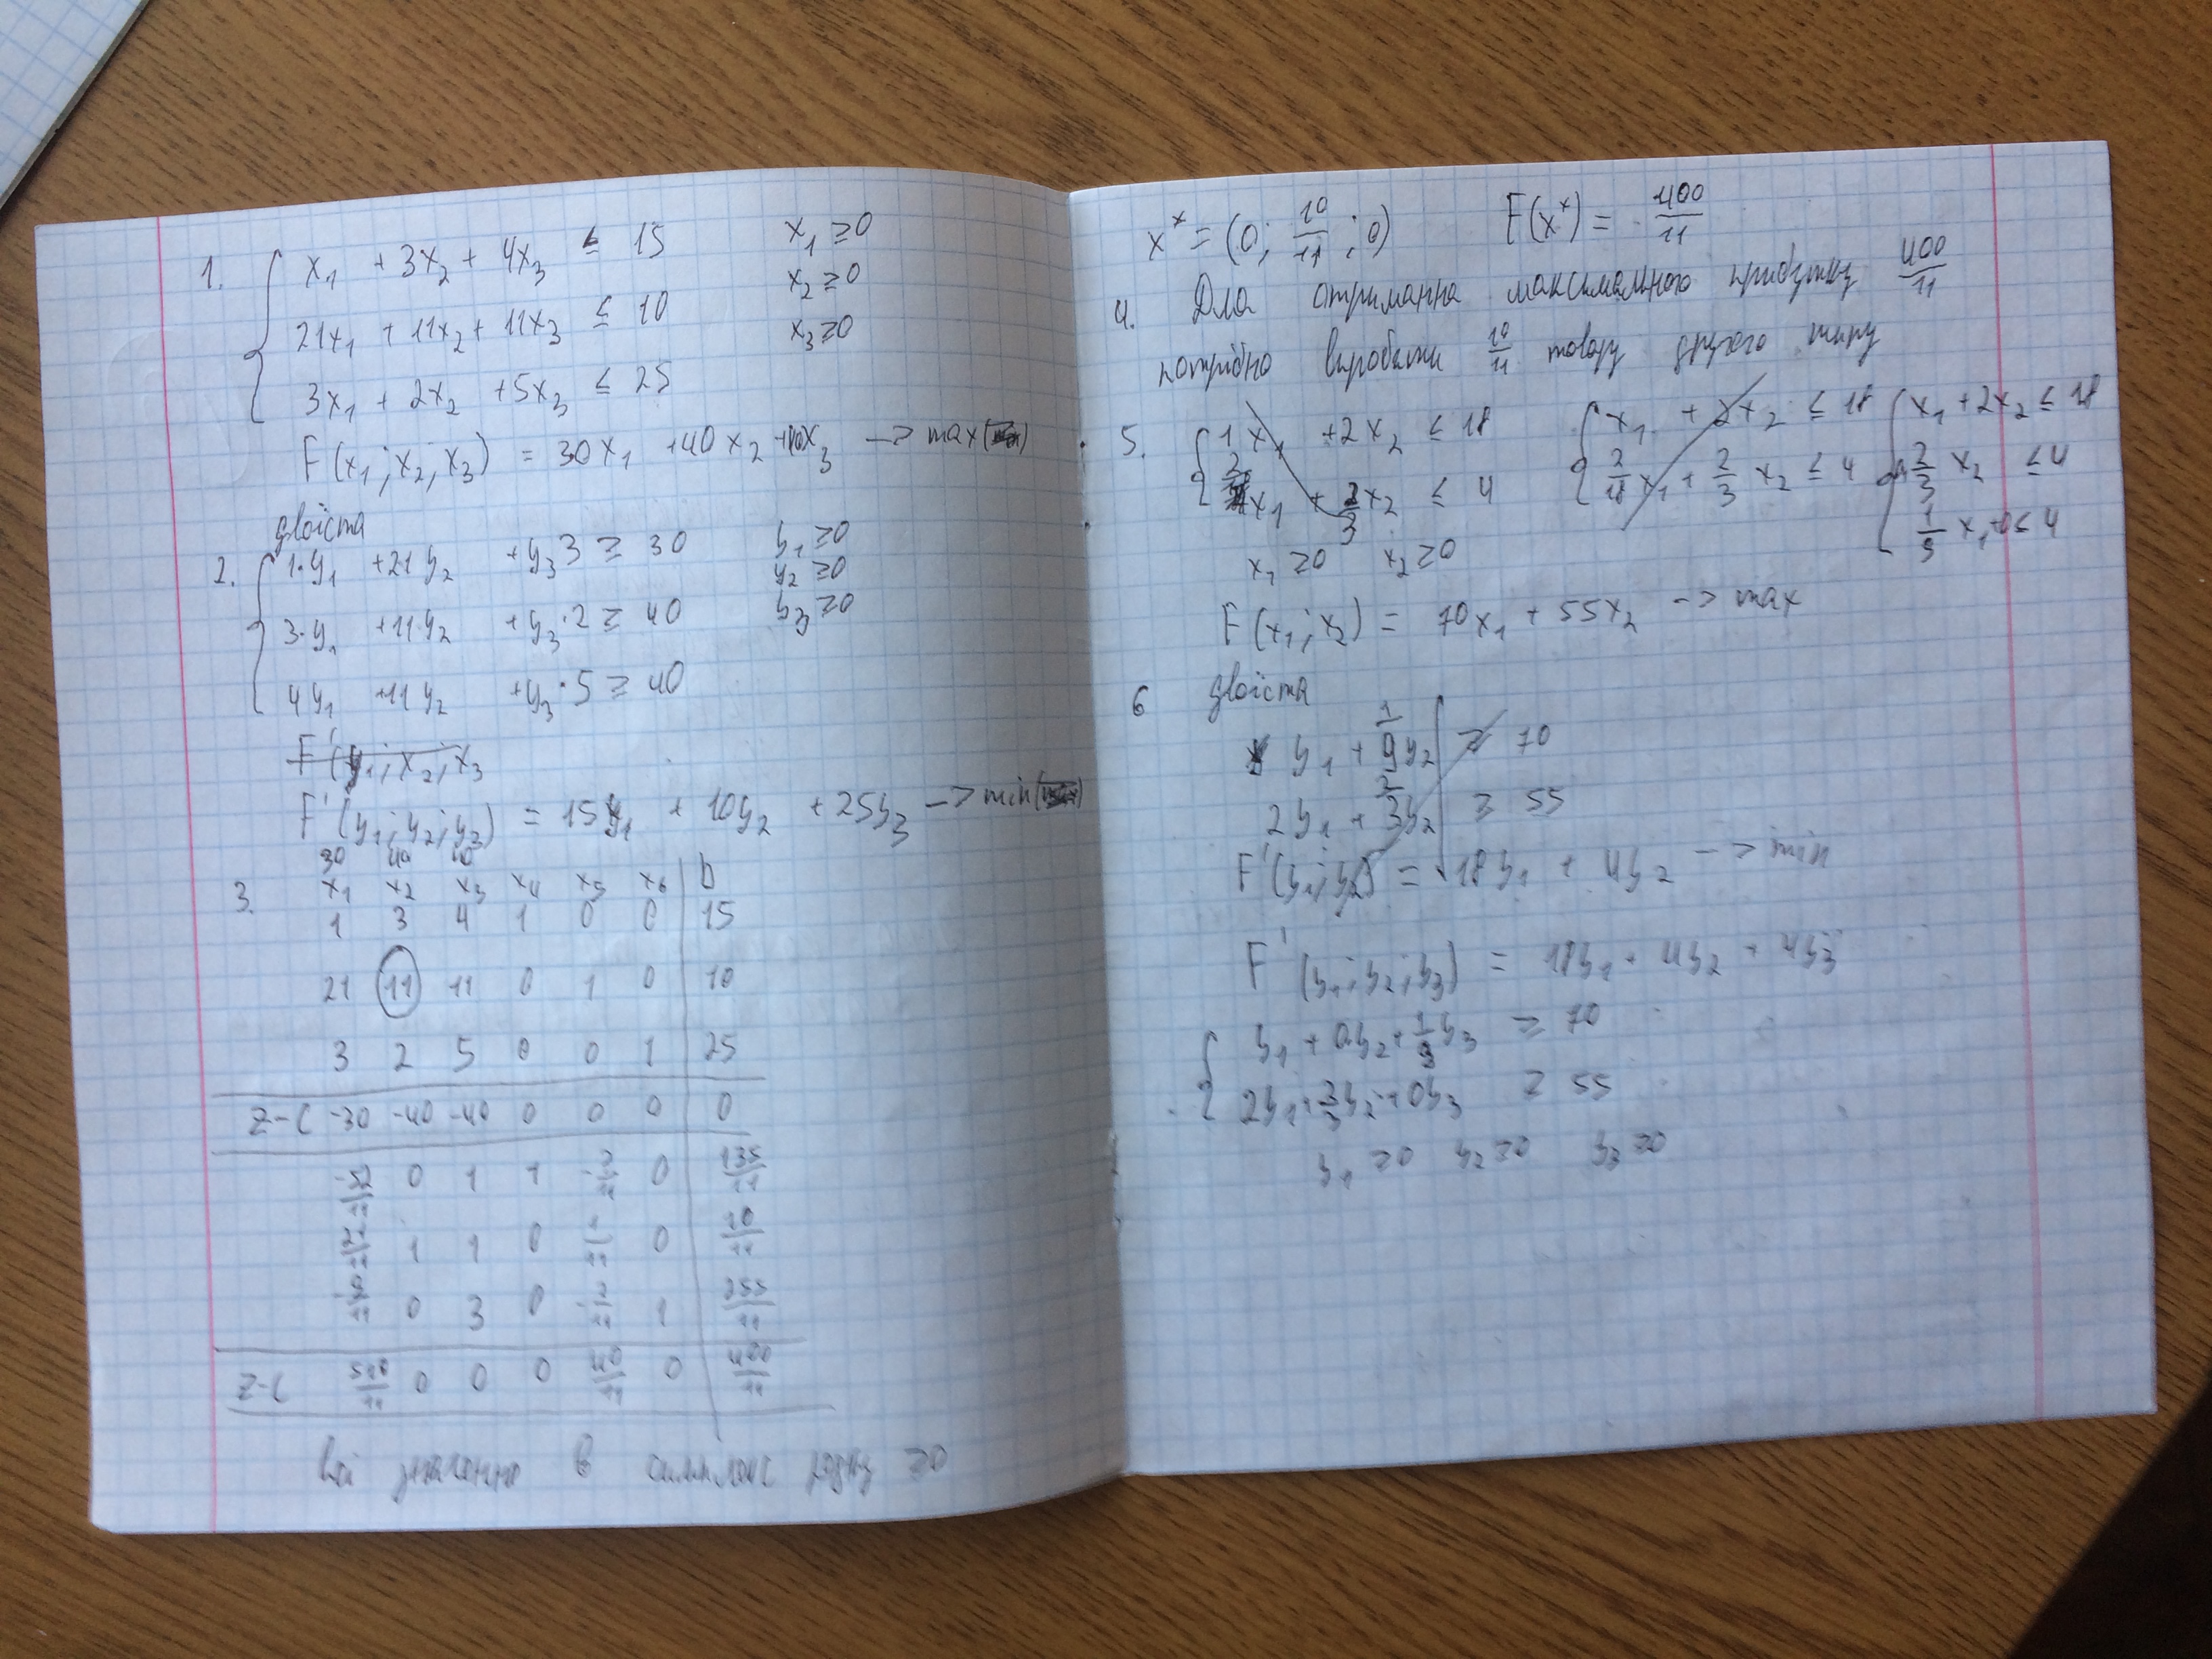 1. x₁ + 3x₂ + 4x₃ ≤ 15 x₁ ≥ 0
21x₁ + 11x₂ + 11x₃ ≤ 10 x₂ ≥ 0
3x₁ + 2x₂ + 5x₃ ≤ 25 x₃ ≥ 0
F(x₁; x₂; x₃) = 30x₁ + 40x₂ + 40x₃ -> max
двоїста
2. 1·y₁ + 21y₂ + y₃3 ≥ 30 y₁ ≥ 0
3·y₁ + 11y₂ + y₃·2 ≥ 40 y₂ ≥ 0
4y₁ + 11y₂ + y₃·5 ≥ 40 y₃ ≥ 0
F'(y₁; x₂; x₃
F'(y₁; y₂; y₃) = 15y₁ + 10y₂ + 25y₃ -> min
30 40 40
3. x₁ x₂ x₃ x₄ x₅ x₆ b
1 3 4 1 0 0 15
21 11 11 0 1 0 10
3 2 5 0 0 1 25
Z-C -30 -40 -40 0 0 0 0
0 1 1 0 135/11
21/11 1 1 0 1/11 0 10/11
-9/11 0 3 0 -2/11 1 255/11
Z-C 510/11 0 0 0 40/11 0 400/11
Всі значення в симплекс рядку ≥0
x* = (0; 10/11; 0) F(x*) = 400/11
4. Для отримання максимального прибутку 400/11
потрібно виробити 10/11 товару другого типу
5. 1x₁ + 2x₂ ≤ 18 x₁ + 2x₂ ≤ 18 x₁ + 2x₂ ≤ 18
x₁ + 2/3x₂ ≤ 4 2/18x₁ + 2/3x₂ ≤ 4 2/3x₂ ≤ 4
1/9x₁+0≤4
x₁ ≥ 0 x₂ ≥ 0
F(x₁; x₂) = 70x₁ + 55x₂ -> max
6 двоїста
y₁ + 1/9y₂ ≥ 70
2y₁ + 2/3y₂ ≥ 55
F'(y₁; y₂) = 18y₁ + 4y₂ -> min
F'(y₁; y₂; y₃) = 18y₁ + 4y₂ + 4y₃
y₁ + 0y₂ + 1/9y₃ ≥ 70
2y₁ + 2/3y₂ + 0y₃ ≥ 55
y₁ ≥0 y₂ ≥0 y₃ ≥0